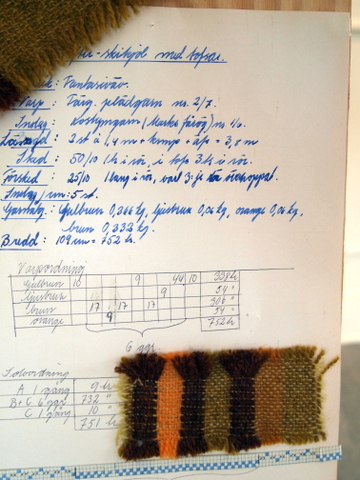 -skihjol med tofsar.
k: Fantasiväv.
Varp: Färg. plädgarn nr. 2/7.
Inslag: Kostymgarn (Marks färg) nr. 4/0.
Längd: 2 st á 1,4 m + krymp + á/p = 3,0 m
Sked: 50/10 1 h i rör, i tofs 3 h i rör.
Försked: 25/10
Inslag/cm: 5 st.
Garnåtg.: Gulbrun 0,266 kg, ljusbrun 0,06 kg, orange 0,06 kg,
brun 0,232 kg.
Bredd: 109 cm = 752 tr.
Varpordning
Gulbrun 10 9 44 10 338 tr
Ljusbrun 9 54 "
brun 17 17 17 306 "
orange 9 54 "
752 tr
6 ggr
Solvordning
A 1 gång 9 tr
B+C 6 ggr 732 "
C 1 gång 10 "
751 tr